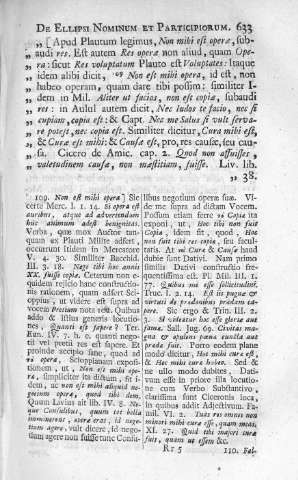 DE ELLIPSI NOMINUM ET PARTICIPIORUM. 633
„ [Apud Plautum legimus, Non mihi est operæ, sub-
audi res. Est autem Res operæ non aliud, quam Ope-
ra: sicut Res voluptatum Plauto est Voluptates: Itaque
idem alibi dicit, 109 Non est mihi opera, id est, non
habeo operam, quam dare tibi possim: similiter I-
dem in Mil. Aliter ut facias, non est copia, subaudi
res: in Aulul autem dicit, Nec ludos te facio, nec si
cupiam, copia est: & Capt. Nec me Salus si vult serva-
re potest, nec copia est. Similiter dicitur, Cura mihi est,
& Curæ est mihi: & Causæ est, pro, res causæ, seu cau-
sa. Cicero de Amic. cap. 2. Quod non affuisses
valetudinem causæ, non mæstitiam, fuisse. Liv. lib.
„ 38.
109. Non est mihi opera] Sic
certe Merc. I. 1. 14. Si opera est
auribus, atque ad advertendum
huc animum adest benignitas.
Verba, quæ mox Auctor tan-
quam ex Plauti Milite adfert,
occurrunt istidem in Mercatore
V. 4. 30. Similiter Bacchid.
III. 3. 18. Nego tibi hoc annis
XX. fuisse copia. Ceterum non e-
quidem rejicio hanc constructio-
nis rationem, quam adfert Sci-
oppius, ut videre est supra ad
vocem Pretium nota test. Quibus
addo & istius generis locutio-
nes, Quanti est sapere? Ter.
Eun. IV. 7. h. e. quanti nego-
tii vel pretii res est sapere. Et
proinde recipio hanc, quod ad
ro opera, Scioppianam exposi-
tionem, ut, Non est mihi ope-
ra, simpliciter ita dictum, sit i-
dem, ac non est mihi aliquid ne-
gotium opera, quod tibi dem.
Quum Livius ait lib. IV. 8. Ne-
que Consulibus, quum tot bella
imminerent, opera erat, id nego-
tium agere, vult dicere, id nego-
tium agere non fuisse tunc Consu-
libus negotium operæ suæ. Vi-
de me supra ad dictam Vocem.
Possum etiam ferre ro Copia ita
exponi, ut, Hoc tibi non fuit
Copia, idem sit, quod, Hoc
non fuit tibi res copia, seu facul-
tatis. At ro Cura & Causæ haud
dubie sunt Dativi. Nam primo
similis Dativi constructio fre-
quentissima est. Pl. Mil. III. 1.
77. Quibus mi esse sollicitudini.
Truc. I. 2. 14. Est iis pugnæ &
virtuti de prædonibus prædam ca-
pere. Sic ergo & Trin. III. 2.
3. Si videatur hoc esse gloriæ aut
famæ. Sall. Jug. 69. Civitas ma-
gna & opulens pæna cuncta aut
prædæ fuit. Porro eodem plane
modo dicitur, Hoc mihi cura est,
& Hoc mihi curæ habeo. Sed &
ne ullo modo dubites, Dati-
vum esse in priore illa locutio-
ne cum Verbo Substantivo,
clarissima sunt Ciceronis loca,
in quibus addit Adjectivum. Fa-
mil. VI. 2. Tuas res omnes non
minori mihi curæ esse, quam meas.
XI. 27. Quid iis majori curæ
fuit, quam ut essem &c.
Rr 5
110. Fal-